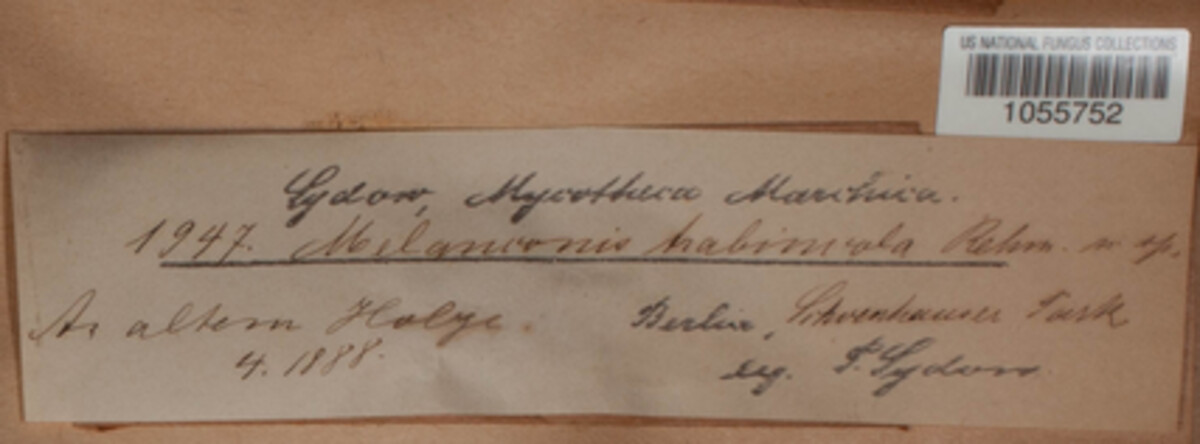 US NATIONAL FUNGUS COLLECTIONS
1055752
Sydow, Mycotheca Marchica.
1947. Melanconis trabinicola Rehm. n. sp.
An altem Holze.
Berlin, Schoenhauser Park
4. 1888.
leg. P. Sydow